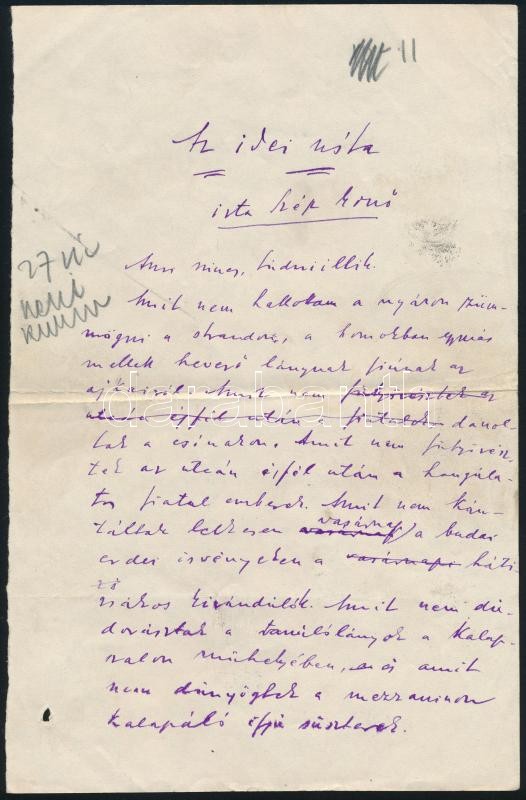 11
Az idei nóta
irta Szép Ernő
27
Ami nincs,
Amit nem hallottam a nyáron züm-
mögni a strandon, a homokban egymás
mellett heverő lánynak fiúnak az
ajkairól. Amit nem fütyörésztek az
utcán éjfél után a fiatalok danol-
tak a csónakon, Amit nem fütyörész-
tek az utcán éjfél után a hangula-
tos fiatal emberek. Amit nem kán-
táltak lelkesen vasárnap a budai
erdei ösvényeken a vasárnapi háti
zsákos kirándulók. Amit nem dú-
dorásztak a tanulólányok a kalap-
szalon műhelyében, és amit
nem dünnyögtek a mezzaninon
kalapáló ifju suszterek.
darabanth